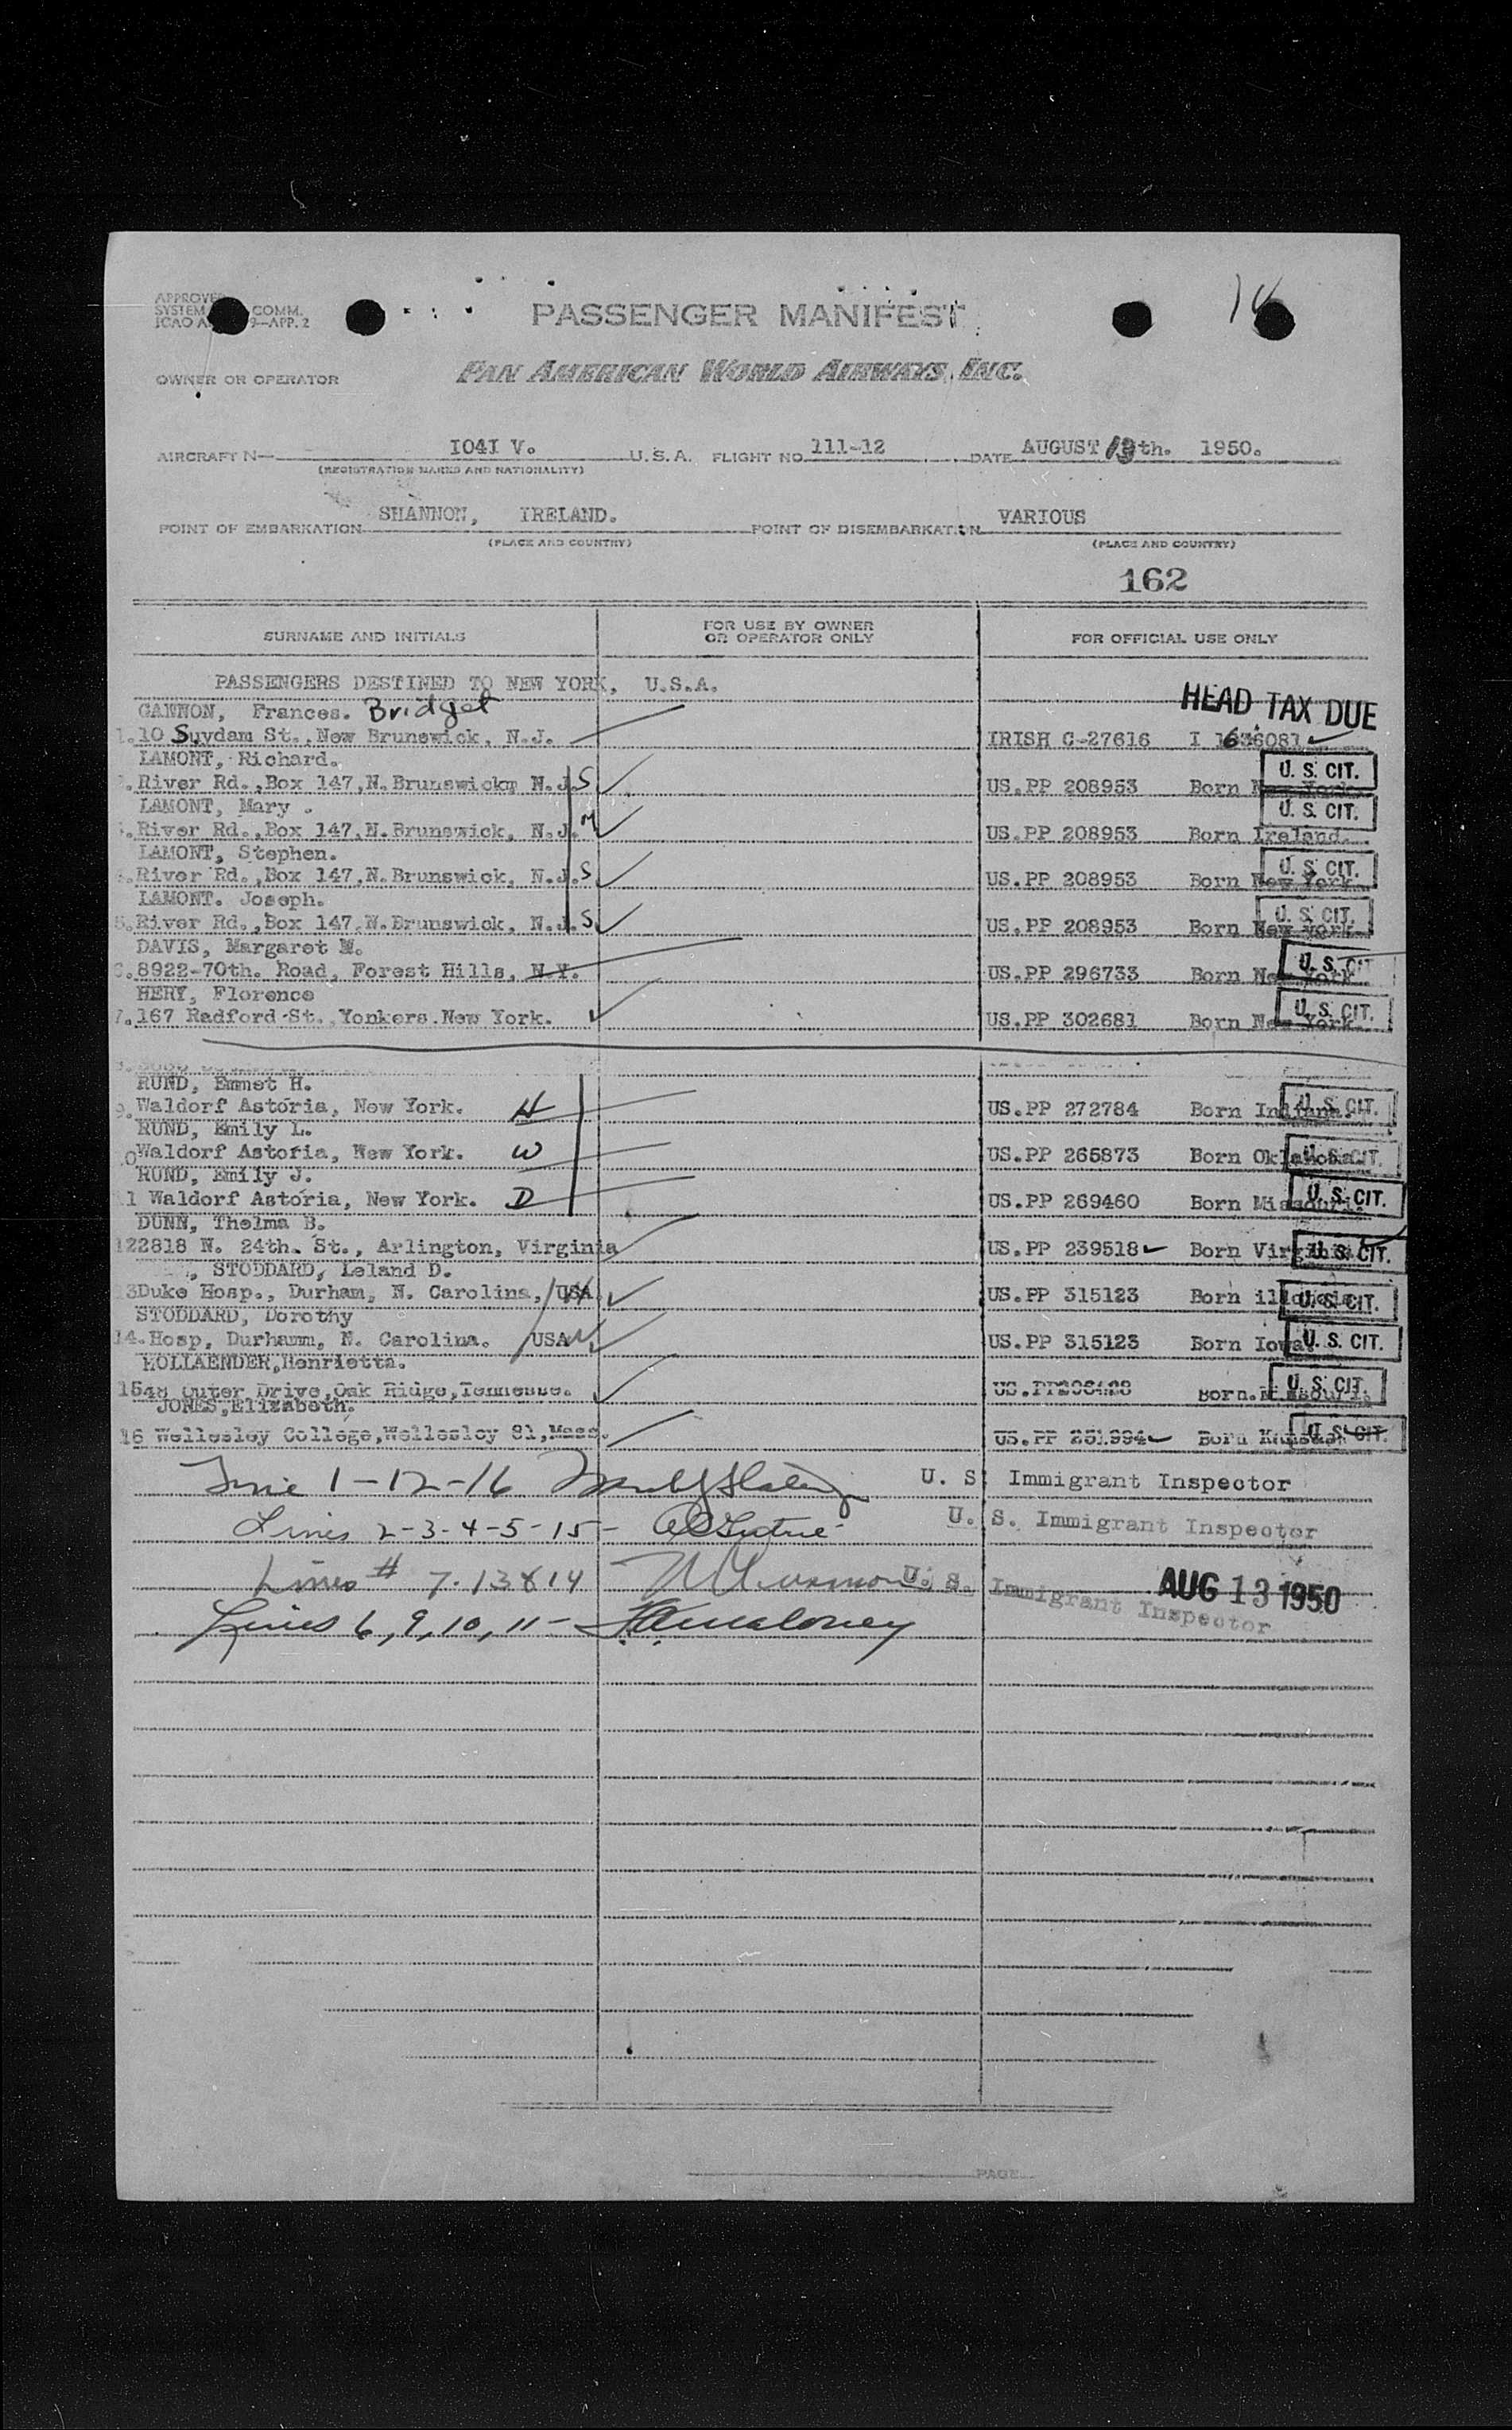 APPROVED
SYSTEM COMM.
ICAO A 9—APP. 2
PASSENGER MANIFEST
OWNER OR OPERATOR
PAN AMERICAN WORLD AIRWAYS, INC.
AIRCRAFT N— I04I V. U.S.A. FLIGHT NO. 111-12 DATE AUGUST 13th. 1950.
(REGISTRATION MARKS AND NATIONALITY)
POINT OF EMBARKATION SHANNON, IRELAND. POINT OF DISEMBARKATION VARIOUS
(PLACE AND COUNTRY) (PLACE AND COUNTRY)
162
SURNAME AND INITIALS FOR USE BY OWNER OR OPERATOR ONLY FOR OFFICIAL USE ONLY
PASSENGERS DESTINED TO NEW YORK, U.S.A.
HEAD TAX DUE
GANNON, Frances. Bridget
1. 10 Suydam St., New Brunswick, N.J. IRISH C-27616 I 1636081
LAMONT, Richard.
River Rd.,Box 147,N.Brunswickm N.J. S US.PP 208953 Born New York. U. S. CIT.
LAMONT, Mary .
River Rd.,Box 147,N.Brunswick, N.J. M US.PP 208953 Born Ireland. U. S. CIT.
LAMONT, Stephen.
River Rd.,Box 147,N.Brunswick, N.J. S US.PP 208953 Born New York. U. S. CIT.
LAMONT. Joseph.
5. River Rd.,Box 147,N.Brunswick, N.J. S US.PP 208953 Born New york. U. S. CIT.
DAVIS, Margaret M.
6. 8922-70th. Road, Forest Hills, N.Y. US.PP 296733 Born New York U. S. CIT.
HERY, Florence
7. 167 Radford St., Yonkers.New York. US.PP 302681 Born New York. U. S. CIT.
RUND, Emmet H.
9. Waldorf Astoria, New York. H US.PP 272784 Born Indiana U. S. CIT.
RUND, Emily L.
10 Waldorf Astoria, New York. W US.PP 265873 Born Oklahoma. U. S. CIT.
RUND, Emily J.
11 Waldorf Astoria, New York. D US.PP 269460 Born Missouri. U. S. CIT.
DUNN, Thelma B.
12 2818 N. 24th. St., Arlington, Virginia US.PP 239518 Born Virginia U. S. CIT.
STODDARD, Leland D.
13 Duke Hosp., Durham, N. Carolina, USA. H US.PP 315123 Born illinois U. S. CIT.
STODDARD, Dorothy
14. Hosp, Durhamm, N. Carolina. USA W US.PP 315123 Born Iowa. U. S. CIT.
HOLLAENDER,Henrietta.
15 48 Outer Drive,Oak Ridge,Tennesse. US.PP Born. Missouri. U. S. CIT.
JONES,Elizabeth.
16 Wellesley College,Wellesley 81,Mass. US.PP 251994 Born Kansas U. S. CIT.
Line 1-12-16 U. S. Immigrant Inspector
Lines 2-3-4-5-15- U. S. Immigrant Inspector
Lines # 7.13&14 U. S. Immigrant Inspector
AUG 13 1950
Lines 6, 9, 10, 11 - Maloney
PAGE